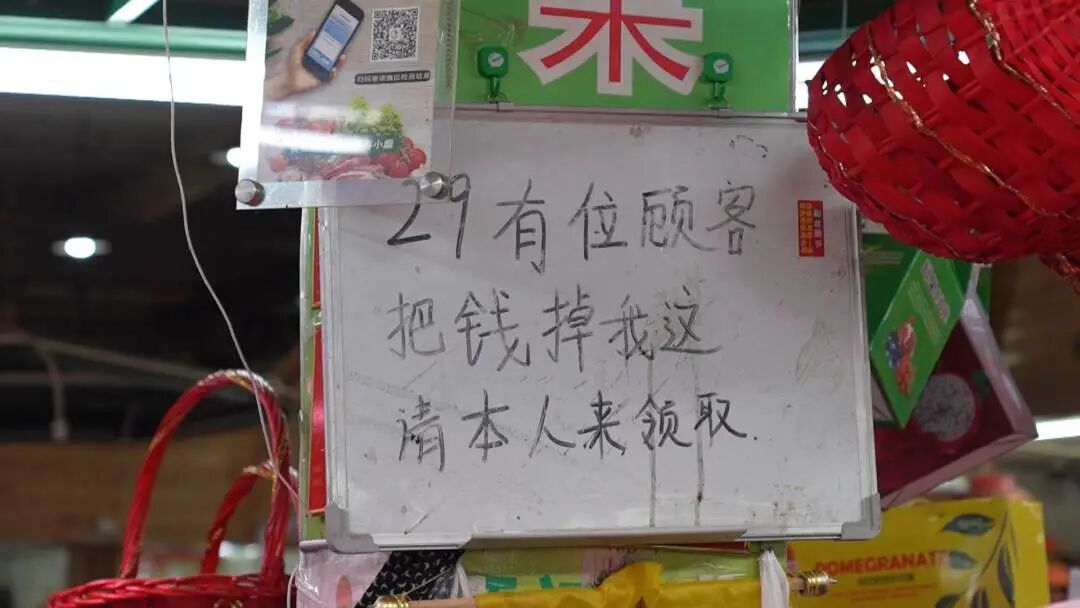 29有位顾客
把钱掉我这
请本人来领取.
POMEGRANATE